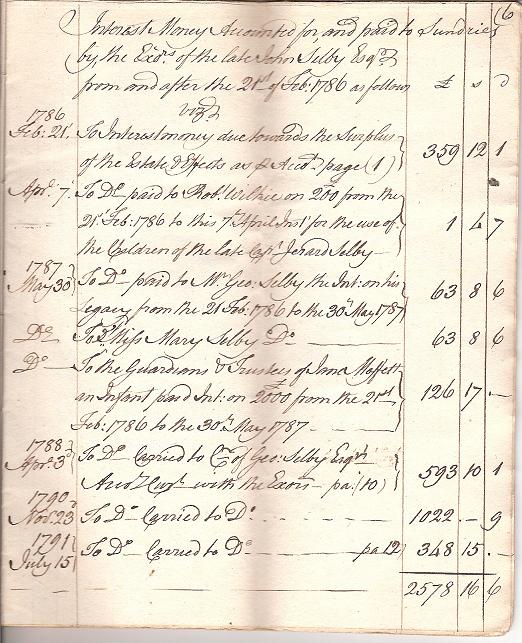 (6
Interest Money Accounted for, and paid to Sundries
by the Exõrs of the late John Selby Esqr
from and after the 21st of Feb: 1786 as follows £ s d
vizt
1786
Feb: 21. To Interest money due towards the Surplus
of the Estate & Effects as ⅌ Acct page (1) } 359 12 1
Apr. 7. To Do paid to Robt. Wilkie on £200 from the
21st Feb: 1786 to this 7th April Inst for the use of
the Children of the late Capt Jerard Selby — } 1 4 7
1787
May 30 } To Do — paid to Mr Geo: Selby the Int: on his
Legacy from the 21 Feb: 1786 to the 30th May 1787 } 63 8 6
Do To Miss Mary Selby Do — 63 8 6
Do — To the Guardians & Trustees of Jane Moffett
an Infant paid Int: on £2000 from the 21st
Feb: 1786 to the 30th May 1787 — } 126 17 —
1788
Apr: 3d } To Do — Carried to Cr of Geo: Selby Esqrs
Acct Curt with the Exõrs — pa: (10) } 593 10 1
1790
Nov: 23 } To Do — Carried to Do — 1022 — 9
1791
July 15 } To Do — Carried to Do — pa 12 } 348 15 —
2578 16 6